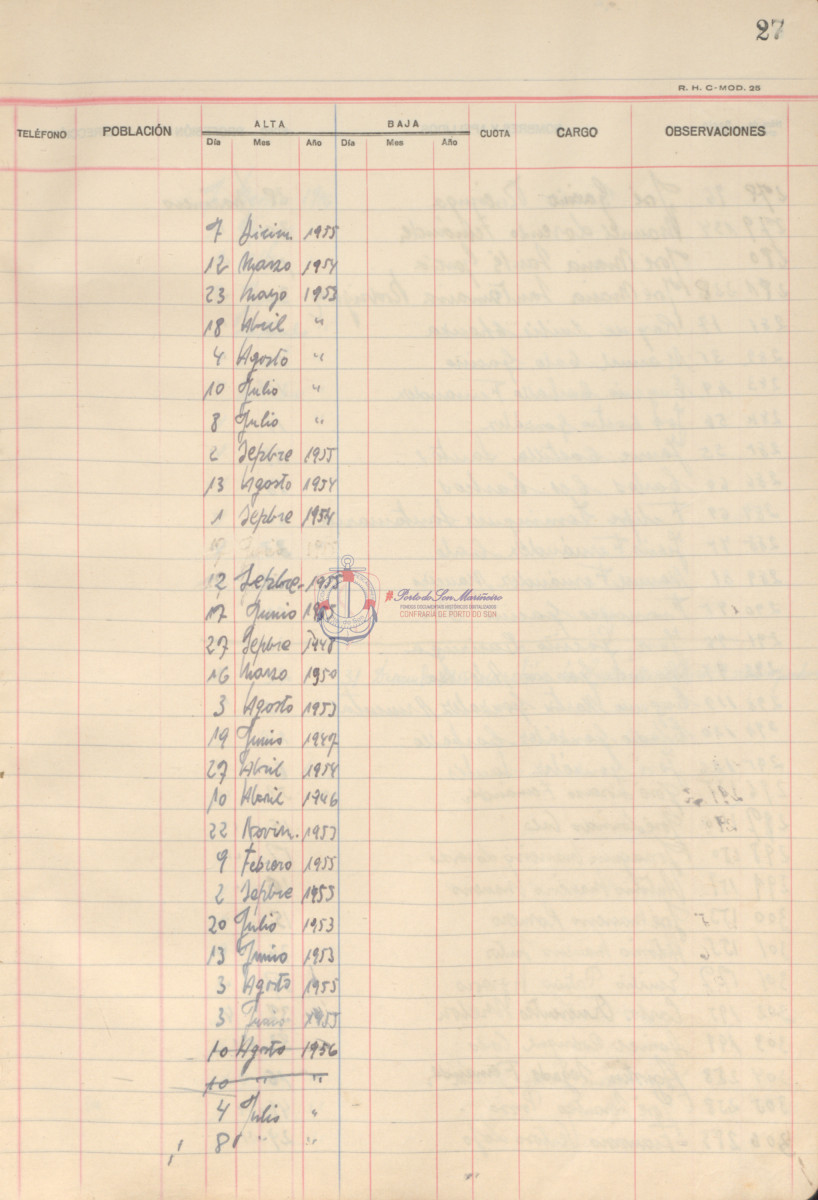 27
R. H. C-MOD. 25
TELÉFONO POBLACIÓN ALTA BAJA CUOTA CARGO OBSERVACIONES
Día Mes Año Día Mes Año
7 Diciem. 1955
12 Marzo 1954
23 Mayo 1953
18 Abril "
4 Agosto "
10 Julio "
8 Julio "
2 Sepbre 1955
13 Agosto 1954
1 Sepbre 1954
12 Sepbre. 1955
Porto do Son Mariñeiro
FONDOS DOCUMENTAIS HISTÓRICOS DIXITALIZADOS
CONFRARÍA DE PORTO DO SON
17 Junio
27 Sepbre 1948
16 Marzo 1950
3 Agosto 1953
19 Junio 1947
27 Abril 1954
10 Abril 1946
22 Novim. 1953
9 Febrero 1955
2 Sepbre 1953
20 Julio 1953
13 Junio 1953
3 Agosto 1955
3 Junio 1955
10 Agosto 1956
10 " "
4 Julio "
8 " "